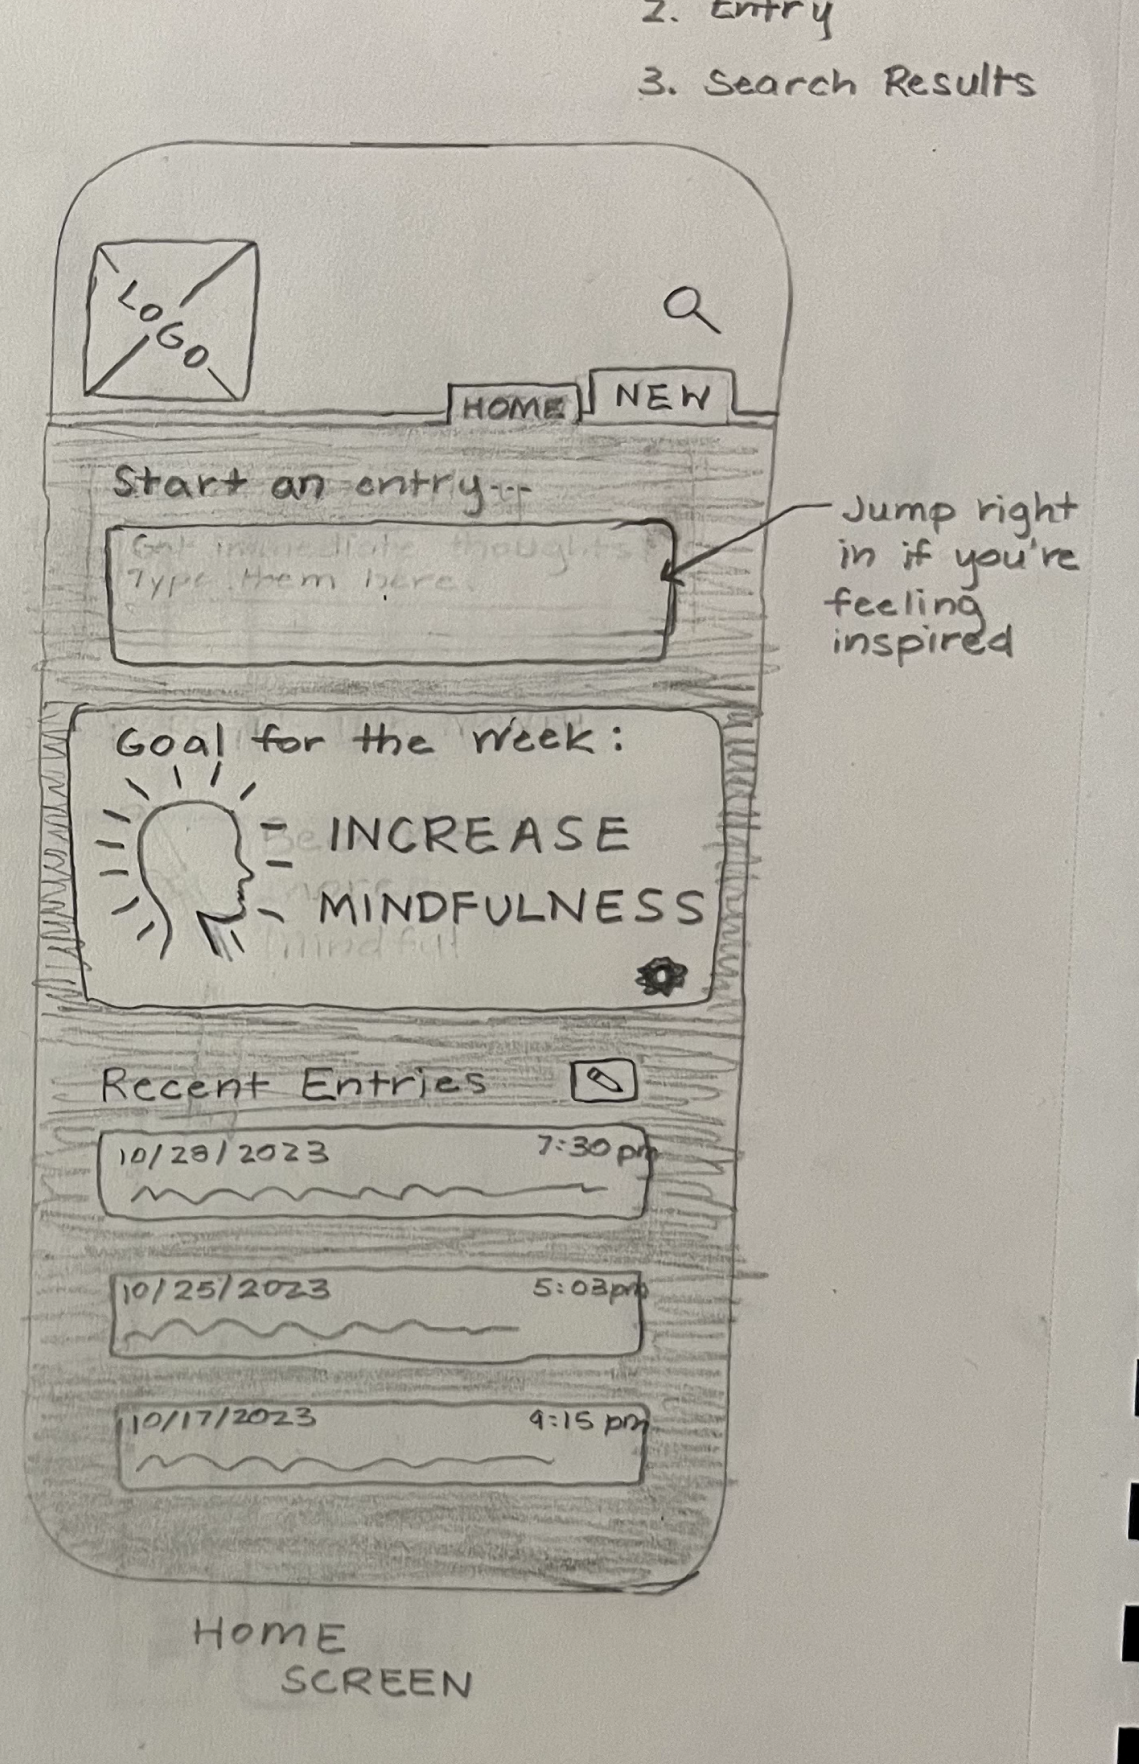 2. Entry
3. Search Results
LOGO
HOME
NEW
Start an entry...
Got immediate thoughts?
Type them here.
Jump right
in if you're
feeling
inspired
Goal for the week:
INCREASE
MINDFULNESS
Be
more
mindful
Recent Entries
10/28/2023 7:30 pm
10/25/2023 5:03pm
10/17/2023 9:15 pm
HOME
SCREEN